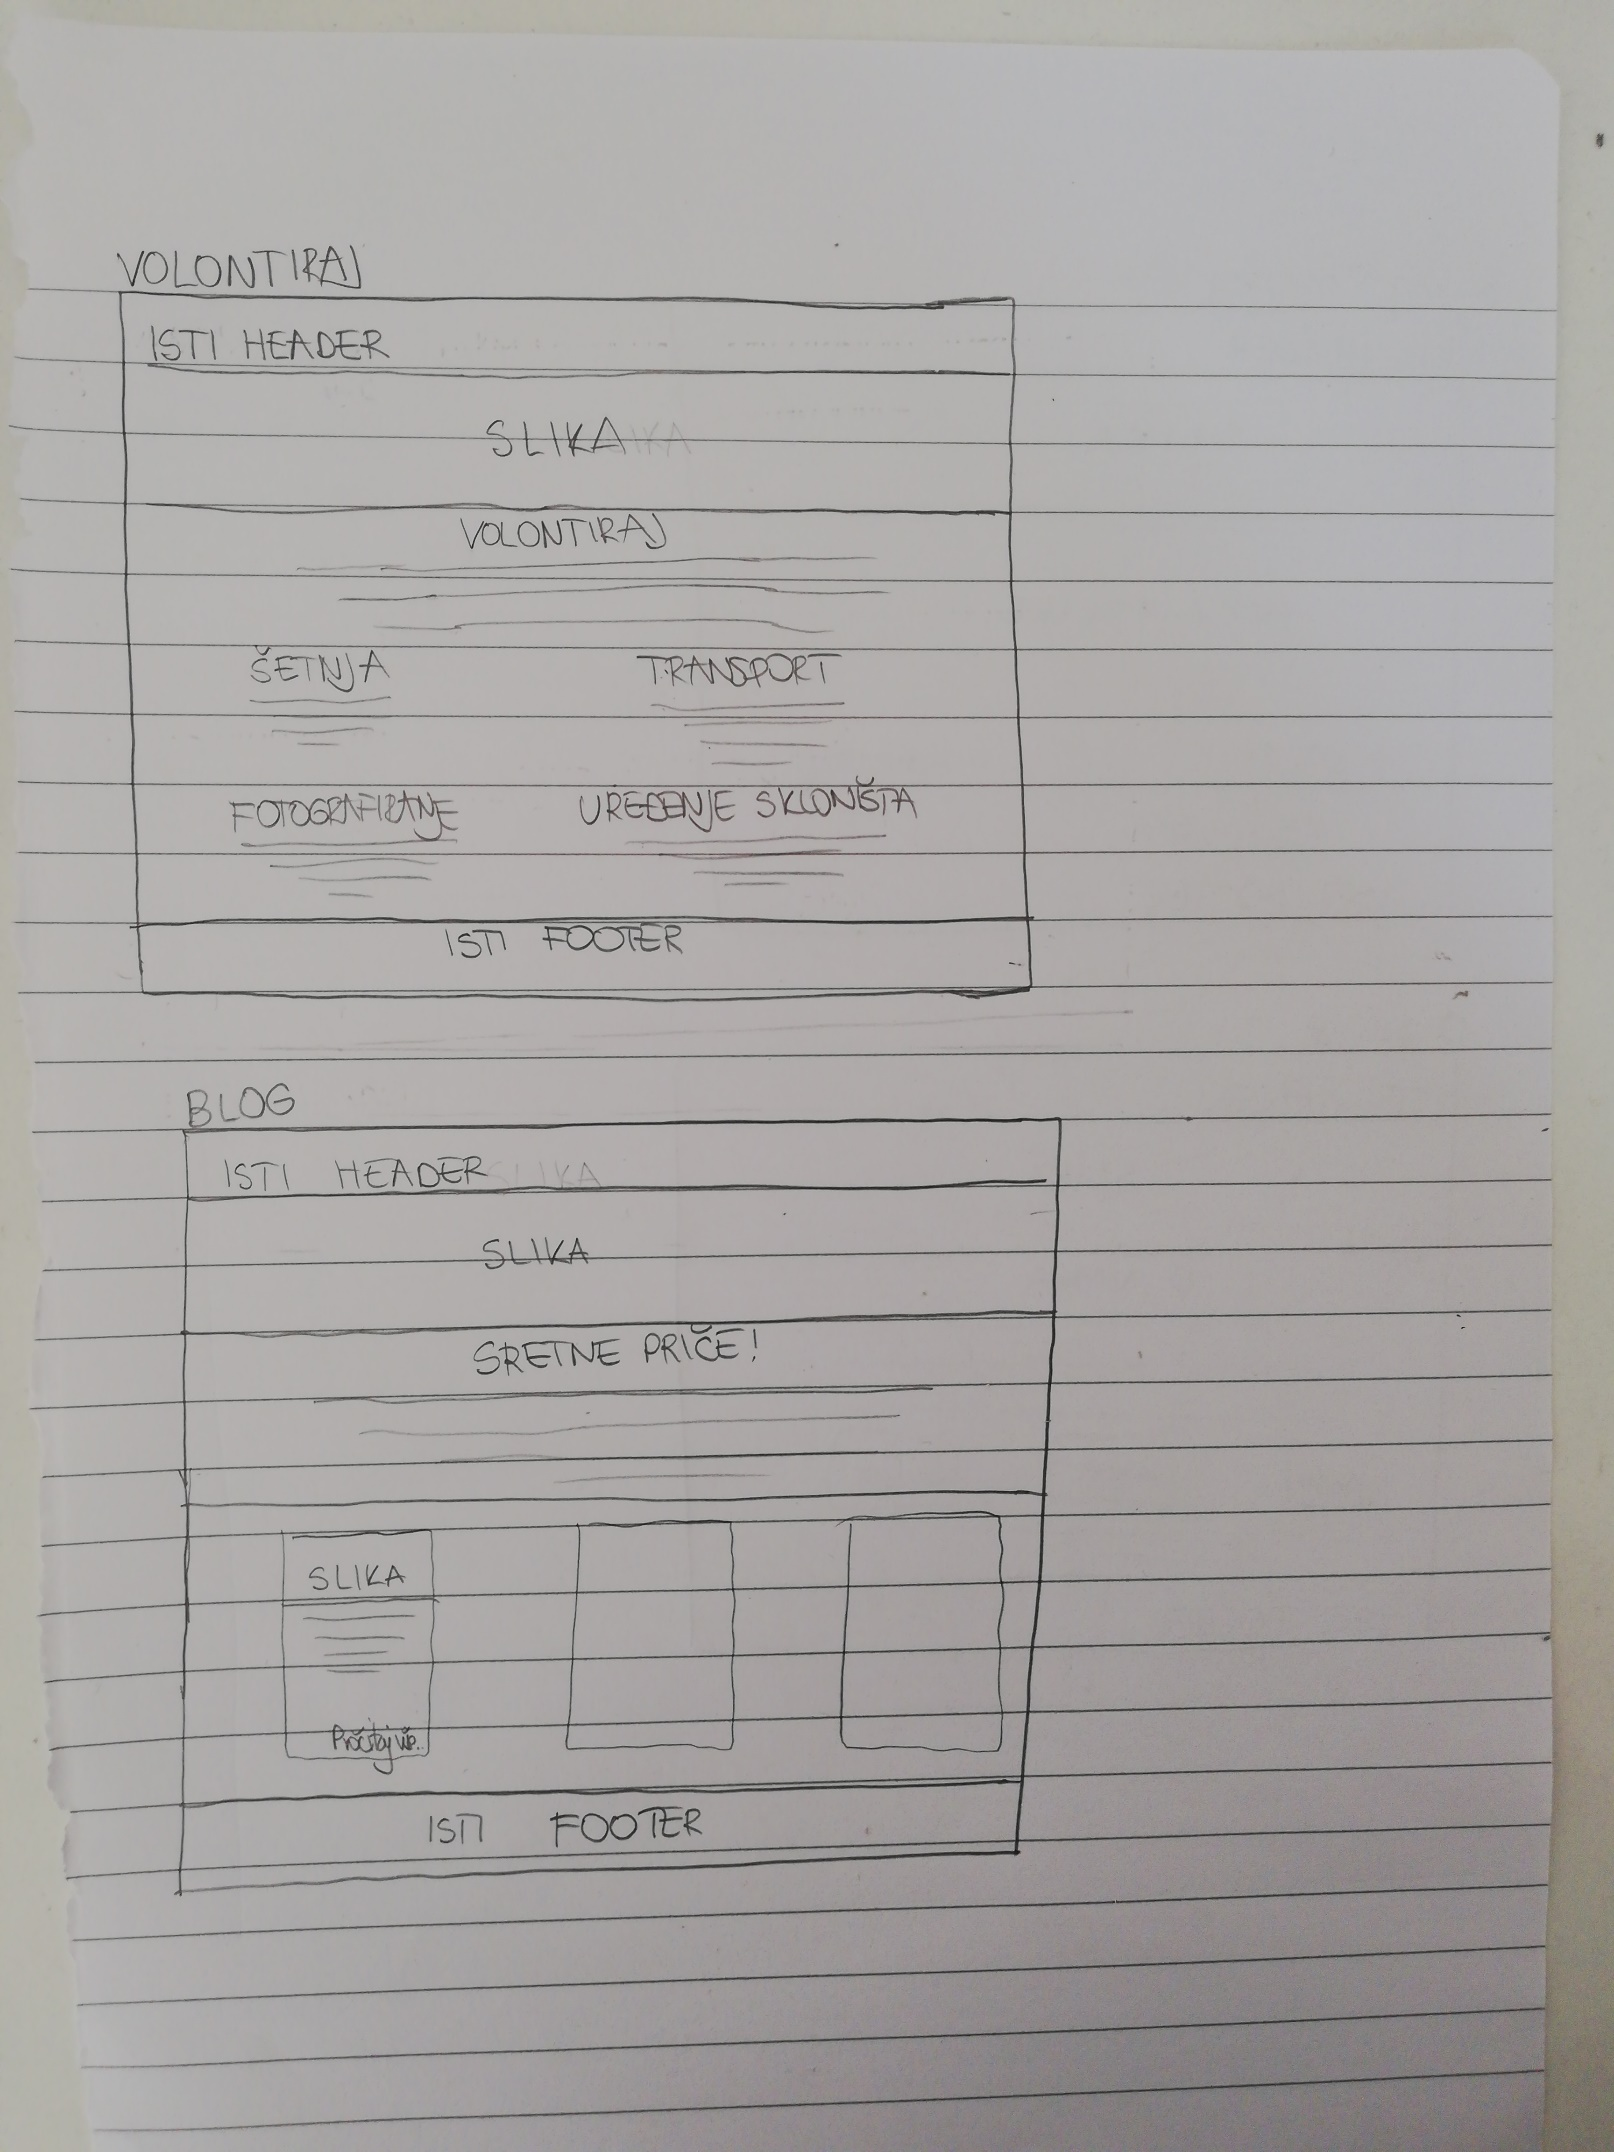 VOLONTIRAJ
ISTI HEADER
SLIKA
VOLONTIRAJ
ŠETNJA TRANSPORT
FOTOGRAFIRANJE UREĐENJE SKLONIŠTA
ISTI FOOTER
BLOG
ISTI HEADER
SLIKA
SRETNE PRIČE!
SLIKA
Pročitaj više..
ISTI FOOTER